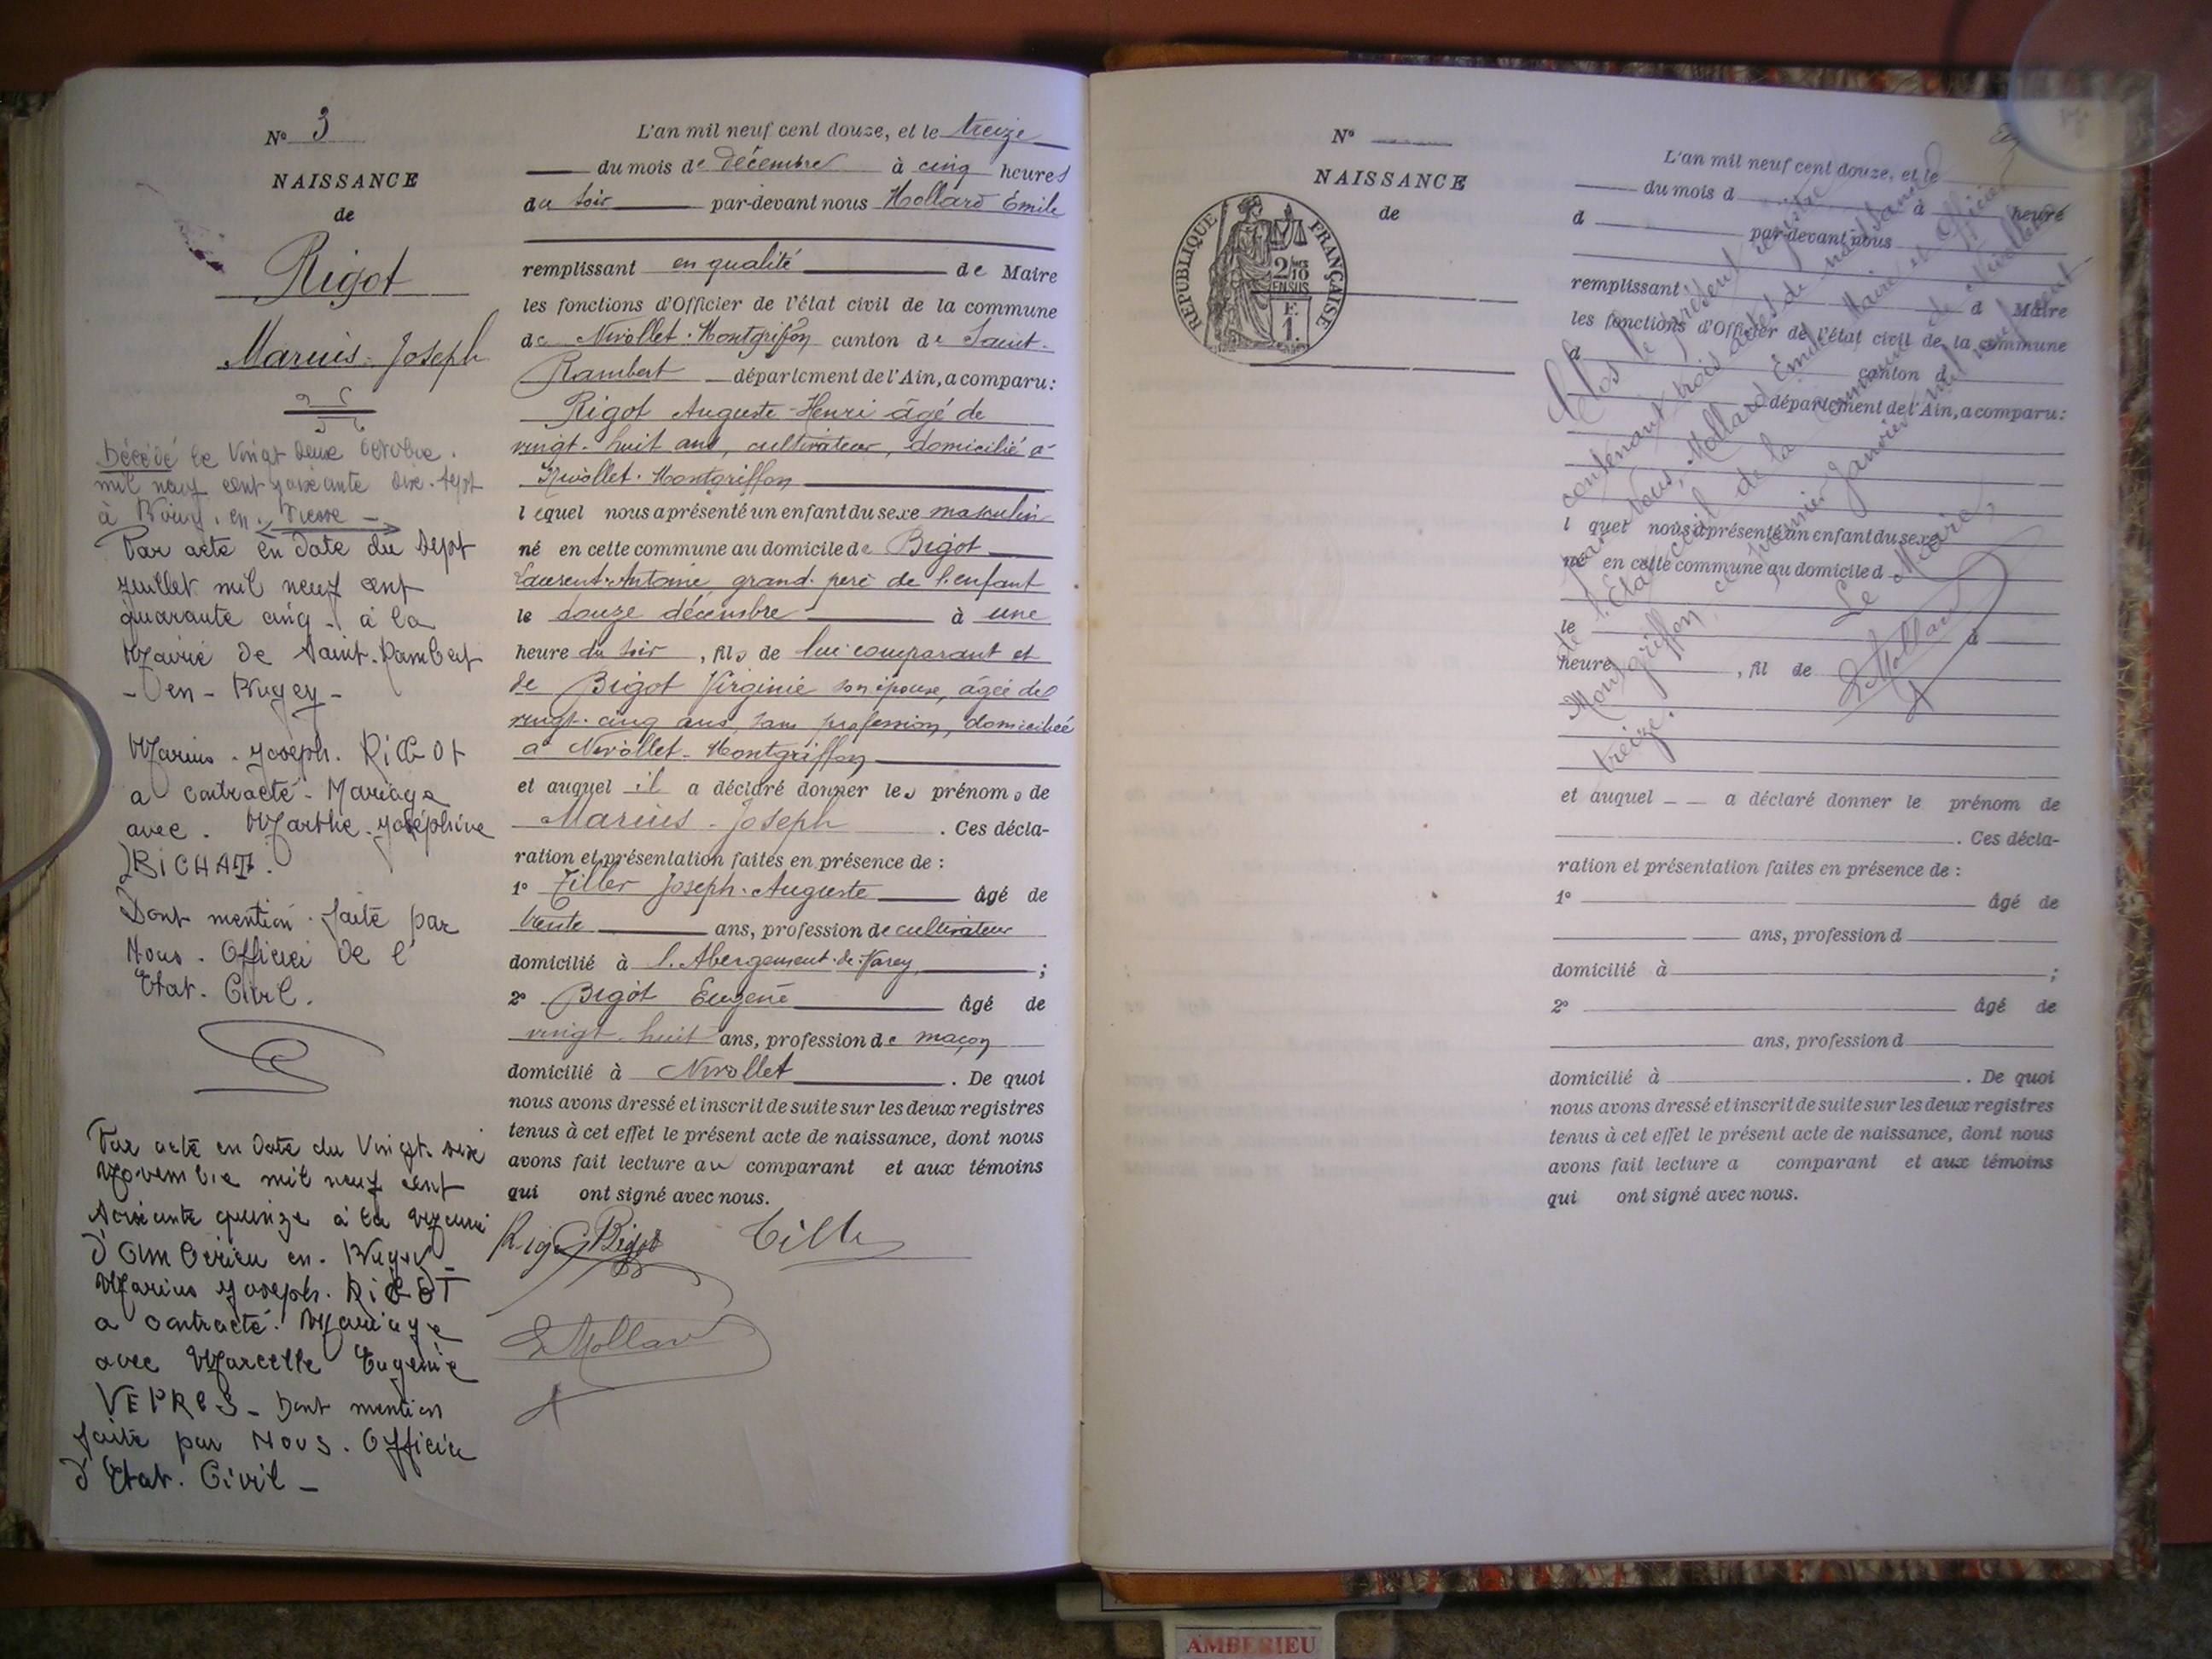 N° 3
NAISSANCE
de
Rigot
Marius-Joseph
Décédé le vingt deux octobre
mil neuf cent soixante dix-sept
à Bourg. en. Bresse -
Par acte en date du sept
juillet mil neuf cent
quarante cinq - à la
Mairie de Saint-Rambert
- en - Bugey -
Marius - Joseph. RIGOT
a contracté - Mariage
avec. Marthe - Joséphine
BICHAT.
Dont mention. faite par
Nous. Officier de l'
Etat. Civil.
Par acte en date du Vingt. six
Novembre mil neuf cent
soixante quinze à la Mairie
d'Ambérieu en. Bugey -
Marius Joseph. RIGOT
a contracté. Mariage
avec Marcelle Eugénie
VEPRES - Dont mention
faite par NOUS. Officier
d'Etat. Civil -
L'an mil neuf cent douze, et le treize
du mois de décembre à cinq heures
du soir par-devant nous Mollard Émile
remplissant en qualité de Maire
les fonctions d'Officier de l'état civil de la commune
de Nivollet-Montgriffon canton de Saint-
Rambert département de l'Ain, a comparu:
Rigot Auguste-Henri âgé de
vingt-huit ans, cultivateur, domicilié à
Nivollet-Montgriffon
lequel nous a présenté un enfant du sexe masculin
né en cette commune au domicile de Bigot
Laurent-Antoine, grand-père de l'enfant
le douze décembre à une
heure du soir, fils de lui comparant et
de Bigot Virginie son épouse, âgée de
vingt-cinq ans, sans profession, domiciliée
à Nivollet-Montgriffon
et auquel il a déclaré donner les prénoms de
Marius-Joseph. Ces décla-
ration et présentation faites en présence de :
1° Tiller Joseph-Auguste âgé de
trente ans, profession de cultivateur
domicilié à l'Abergement-de-Varey ;
2° Bigot Eugène âgé de
vingt-huit ans, profession de maçon
domicilié à Nivollet. De quoi
nous avons dressé et inscrit de suite sur les deux registres
tenus à cet effet le présent acte de naissance, dont nous
avons fait lecture au comparant et aux témoins
qui ont signé avec nous.
Rigot Bigot Tiller
E Mollard
N°
NAISSANCE
de
RÉPUBLIQUE FRANÇAISE
2/10 EN SUS
F.
1.
L'an mil neuf cent douze, et le
du mois d à heure
d par-devant nous
remplissant d Maire
les fonctions d'Officier de l'état civil de la commune
d canton d
département de l'Ain, a comparu:
l quel nous a présenté un enfant du sexe
né en cette commune au domicile d
le à
heure , fil de
et auquel a déclaré donner le prénom de
. Ces décla-
ration et présentation faites en présence de :
1° âgé de
ans, profession d
domicilié à ;
2° âgé de
ans, profession d
domicilié à . De quoi
nous avons dressé et inscrit de suite sur les deux registres
tenus à cet effet le présent acte de naissance, dont nous
avons fait lecture a comparant et aux témoins
qui ont signé avec nous.
Clos le présent registre
contenant trois actes de naissance
par Nous, Mollard Émile Maire et Officier
de l'Etat civil de la commune de Nivollet
Montgriffon, ce premier Janvier mil neuf cent
treize.
Le Maire,
E Mollard
AMBERIEU